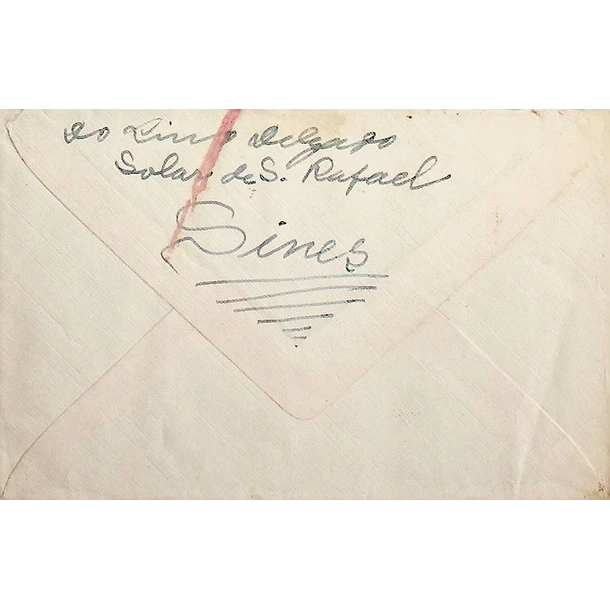 Do Lino Delgado
Solar de S. Rafael
Sines